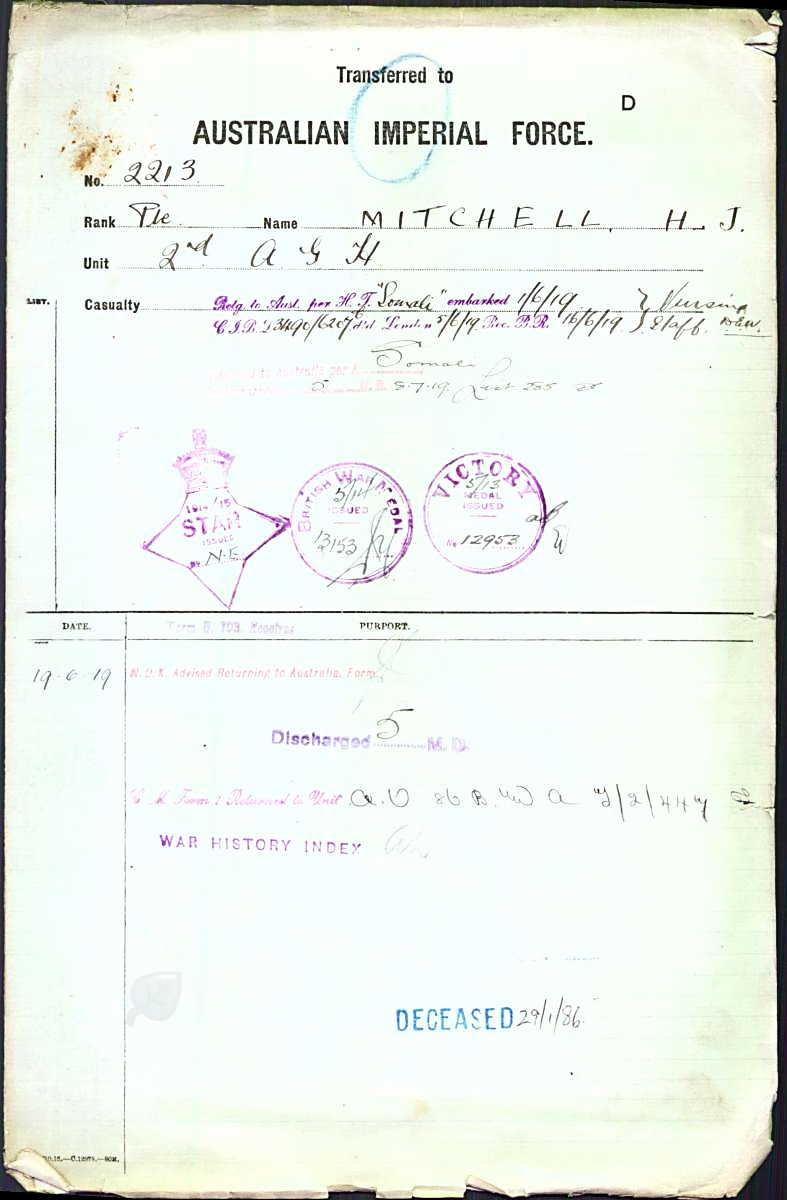 Transferred to
D
AUSTRALIAN IMPERIAL FORCE.
No. 2213
Rank Pte Name MITCHELL, H. J.
Unit 2nd A G H
LIST.
Casualty Retg. to Aust. per H. T. "Somali" embarked 1/6/19 } Nursing
C.I.B. d/d London 5/6/19. Rec. B.R. 16/6/19. } Staff.
Somali
8-7-19. List 285
1914/15 STAR ISSUED No N.E.
BRITISH WAR MEDAL 5/14 ISSUED
VICTORY 5/13 MEDAL ISSUED No 12953
DATE. PURPORT.
19-6-19 Advised Returning to Australia. Form
Discharged 5 M.D.
Form 1 Returned to Unit
WAR HISTORY INDEX
DECEASED 29/1/86.